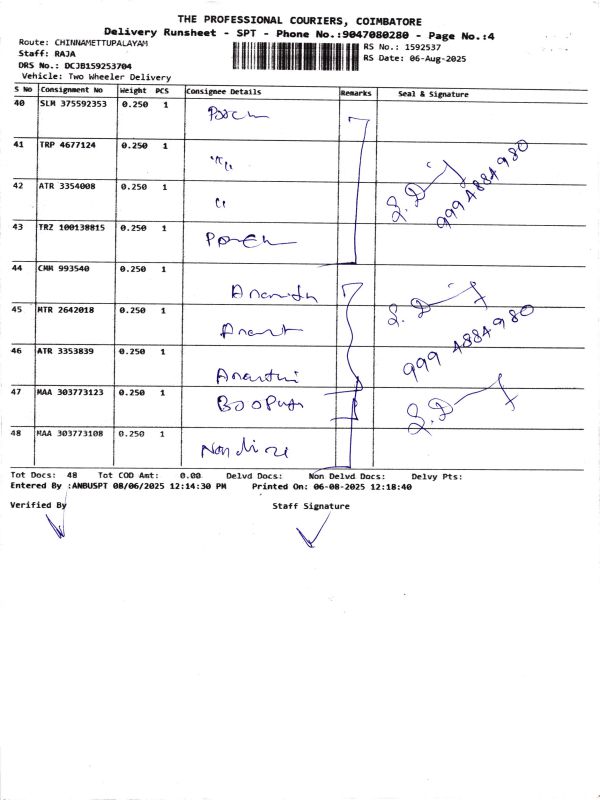 THE PROFESSIONAL COURIERS, COIMBATORE
Delivery Runsheet - SPT - Phone No.:9047080280 - Page No.:4
Route: CHINNAMETTUPALAYAM
RS No.: 1592537
Staff: RAJA
RS Date: 06-Aug-2025
DRS No.: DCJB159253704
Vehicle: Two Wheeler Delivery
S No Consignment No Weight PCS Consignee Details Remarks Seal & Signature
40 SLM 375592353 0.250 1
41 TRP 4677124 0.250 1 "
42 ATR 3354008 0.250 1 "
43 TRZ 100138815 0.250 1
999 4884980
44 CMM 993540 0.250 1
45 MTR 2642018 0.250 1
46 ATR 3353839 0.250 1 Ananthi
999 4884980
47 MAA 303773123 0.250 1
48 MAA 303773108 0.250 1
Tot Docs: 48 Tot COD Amt: 0.00 Delvd Docs: Non Delvd Docs: Delvy Pts:
Entered By :ANBUSPT 08/06/2025 12:14:30 PM Printed On: 06-08-2025 12:18:40
Verified By Staff Signature